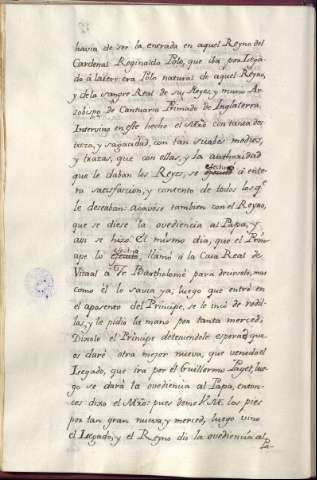 havia de ser la entrada en aquel Reyno del
Cardenal Reginaldo Polo, que iba por Lega-
do â latere: era Polo natural de aquel Reyno,
y de la sangre Real de sus Reyes, y murio Ar-
zobispo de Cantuaria Primado de Inglaterra.
Intervino en este hecho el Mro con tanta des-
treza, y sagacidad, con tan suabes medios,
y trazas, que con ellas, y la authoridad
que le daban los Reyes, se efectuó â ente-
ra satisfaccion, y contento de todos los qe
le deseaban: acavose tambien con el Reyno,
que se diese la ovediencia al Papa, y
asi se hizo. El mismo dia, que el Prin-
cipe lo efectuó, llamó â la Casa Real de
Vitaal â Fr. Bartholomé para decirselo, mas
como él lo savia ya, luego que entró en
el aposento del Principe, se le incó de rodil-
las, y le pidio la mano por tanta merced;
Dixole el Principe deteniendole esperad que
os daré otra mejor nueva, que veniendo el
Legado, que ira por él Guillermo Paget, lue-
go se dará la ovediencia al Papa, enton-
ces dixo el Mro: pues deme V. A. los pies
por tan gran nueva, y merced, luego vino
el Legado, y el Reyno dio la ovediencia al
Pa-